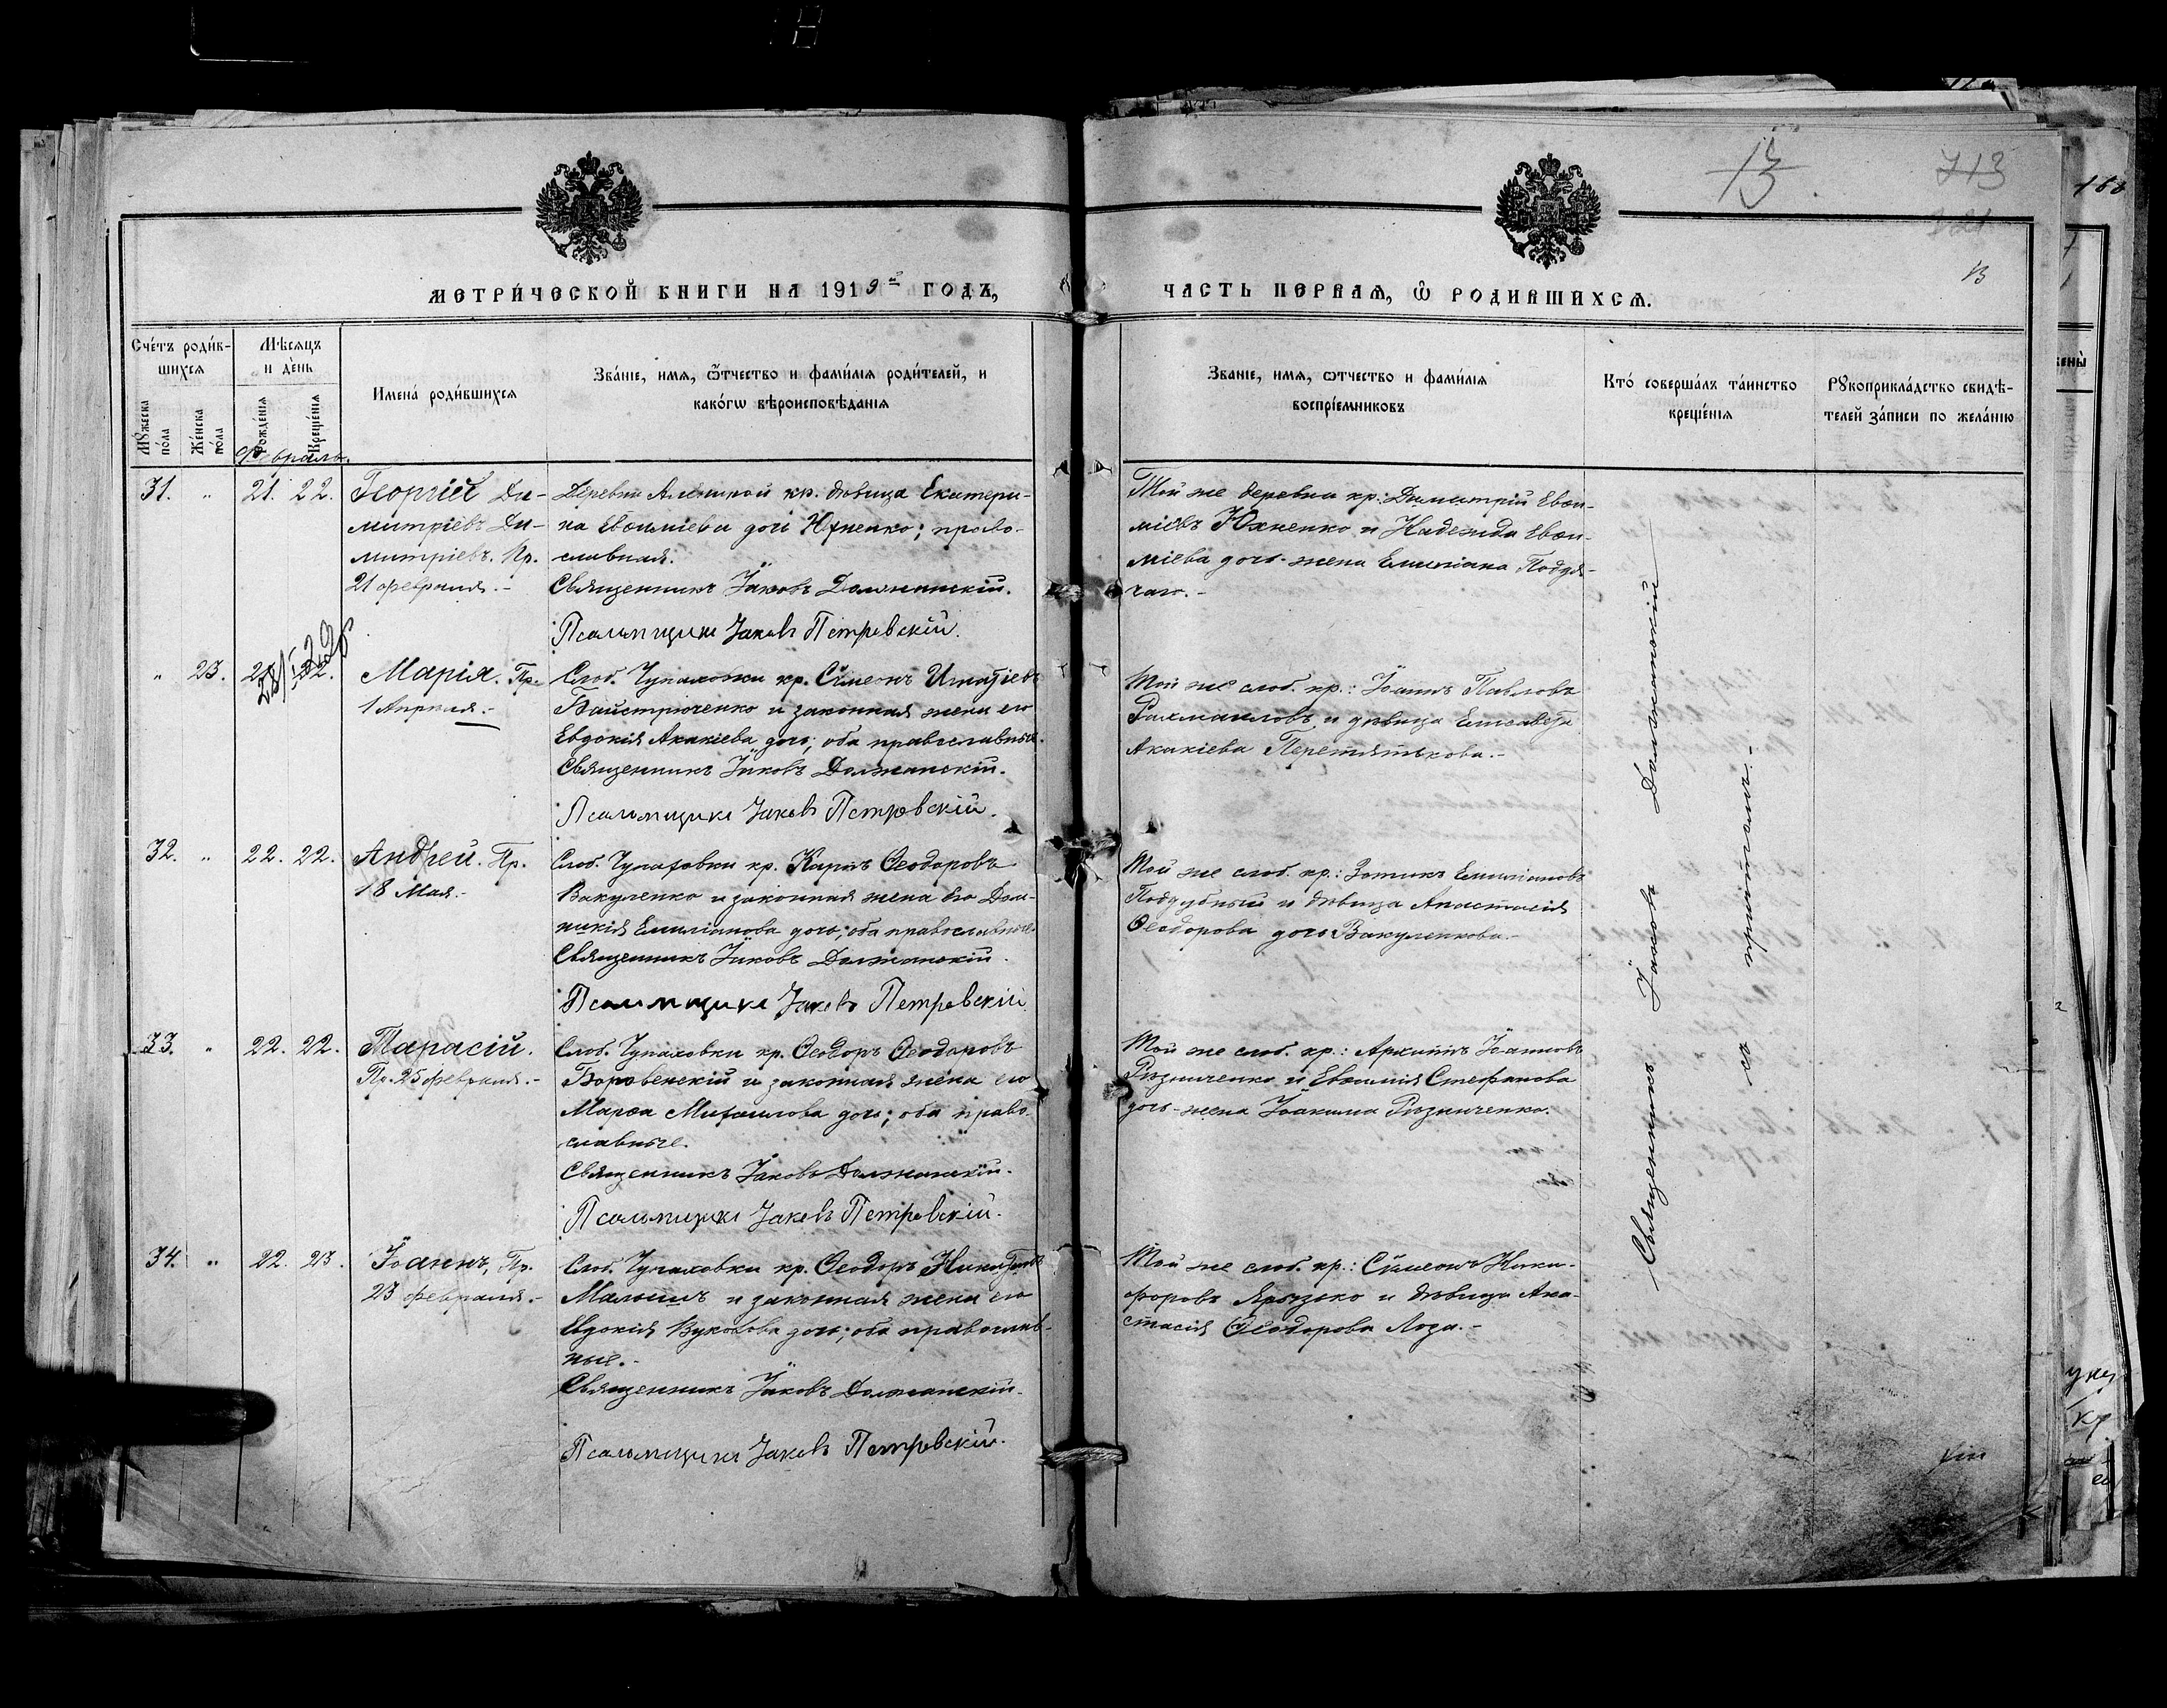 13
713
13
МЕТРИ́ЧЕСКОЙ КНИГИ НА 1919й ГОДЪ,
ЧАСТЬ ПЕРВАѦ, Ѡ РОДИВШИХСѦ.
Сче́тъ роди́в-
шихсѧ
Мѣ́сѧцъ
и де́нь
Имена̀ роди́вшихсѧ
Зва́нїе, имѧ, ѻ҆́тчество и фами́лїѧ роди́телей, и
како́гѡ вѣроисповѣ́данїѧ
Мꙋ́жеска по́ла
Же́нска по́ла
Рожде́нїѧ
Креще́нїѧ
Зва́нїе, имѧ, ѻтчество и фами́лїѧ
воспрїе́мниковъ
Кто́ соверша́лъ та́инство
креще́нїѧ
Рꙋкоприкла́дство свидѣ́-
телей за́писи по жела́нїю
Февраль.
31. " 21. 22.
Георгій Ди-
митріевъ Ди-
митріевъ. Пр.
21 февраля.-
кр. дѣвица Екатери-
на Евѳиміева дочь Юхненко; право-
славная.
Священникъ Іаковъ Должанскій.
Псаломщикъ Іаковъ Петровскій.
Той же деревни кр.: Димитрій Евѳи-
міевъ Юхненко и Надежда Евѳи-
міева дочь-жена Емиліана
" 23.
Марія. Пр.
1 Апрѣля.-
Слоб. Чупаховки кр. Сѵмеонъ Игнатіевъ
Байстрюченко и законная жена его
Евдокія Акакіева дочь; оба православные.
Священникъ Іаковъ Должанскій.
Псаломщикъ Іаковъ Петровскій.
Той же слоб. кр.: Іоаннъ Павловъ
Рахмаиловъ и дѣвица Елисавета
Акакіева Перетятькова.-
32. " 22. 22.
Андрей. Пр.
18 Мая.-
Слоб. Чупаховки кр. Карпъ Ѳеодоровъ
Вакуленко и законная жена его Дом-
никія Емиліанова дочь; оба православные.
Священникъ Іаковъ Должанскій.
Псаломщикъ Іаковъ Петровскій
Той же слоб. кр.: Зотикъ Емиліановъ
Поддубный и дѣвица Анастасія
Ѳеодорова дочь Вакуленкова.-
33. " 22. 22.
Тарасій.
Пр. 25 февраля.-
Слоб. Чупаховки кр. Ѳеодоръ Ѳеодоровъ
Боровенскій и законная жена его
Марѳа Михаилова дочь; оба право-
славные.
Священникъ Іаковъ Должанскій.
Псаломщикъ Іаковъ Петровскій.
Той же слоб. кр.: Архиппъ Іоанновъ
Рѣзниченко и Евѳимія Стефанова
дочь-жена Іоакима Рѣзниченко.
34. " 22. 23.
Іоаннъ, Пр.
23 февраля.-
Слоб. Чупаховки кр. Ѳеодоръ
Малышъ и законная жена его
Евдокія Вуколова дочь; оба православ-
ные.-
Священникъ Іаковъ Должанскій.
Псаломщикъ Іаковъ Петровскій.
Той же слоб. кр.: Сѵмеонъ Ники-
форовъ и дѣвица Ана-
стасія Ѳеодорова Лоза.-
Священникъ Іаковъ Должанскій
съ причтомъ.-